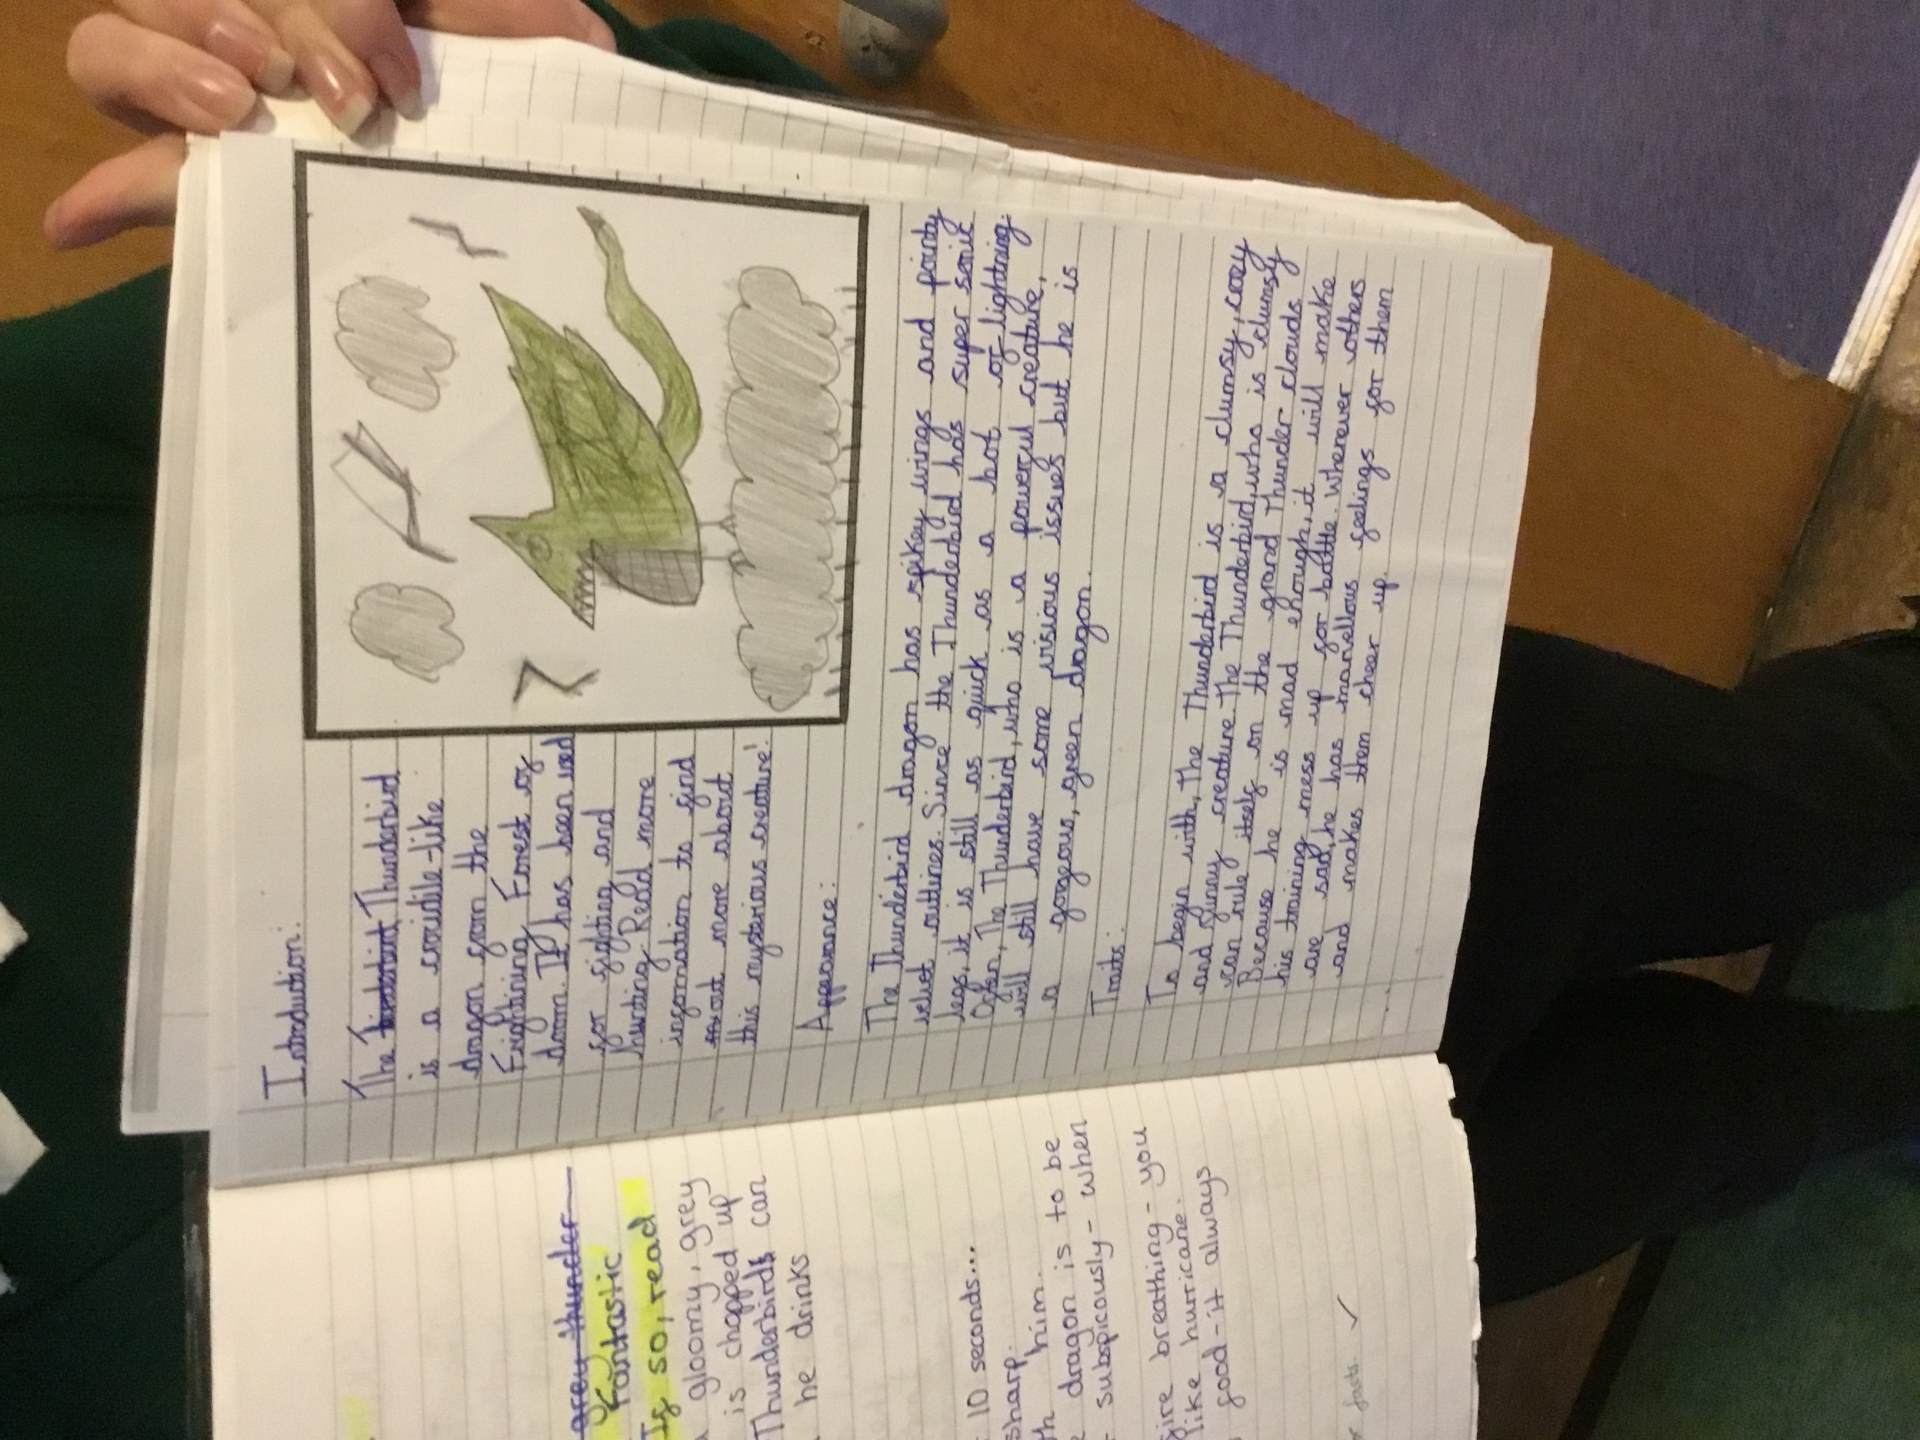 grey thunder
Fantastic
If so, read
gloomy, grey
is chopped up
Thunderbirds can
he drinks
10 seconds...
sharp.
him.
dragon is to be
subspicously - when
fire breathing - you
like hurricane.
good - it always
facts. ✓
Introduction:
The Thunderbird
is a cocidile-like
dragon from the
Frightining Forest of
doom. It has been used
for fighting and
hunting. Read more
infomation to find
out more about
this mysterious creature!
Appearance:
The Thunderbird dragon has spikey wings and pointy
outlines. Since the Thunderbird has super sonic
legs, it is still as quick as a bot of lightning.
Often, The Thunderbird, who is a powerful creature,
will still have some visious issues but he is
a gorgeous, green dragon.
Traits:
To begin with, The Thunderbird is a clumsy, cozy
and funny creature. The Thunderbird, who is clumsy
can rule itself on the grand Thunder clouds
Because he is mad enough, it will make
his training mess up for battle. Wherever others
are sad, he has marvellous feelings for them
and makes them cheer up.